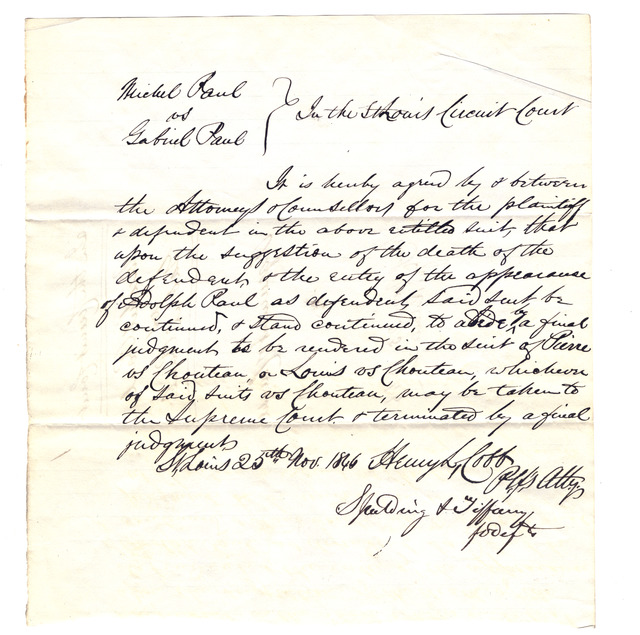 Michel Paul
vs
Gabriel Paul
In the St Louis Circuit Court
It is hereby agreed by & between
the Attorneys & Counsellors for the plaintiff
& dependent in the above entitled suit, that
upon the suggestion of the death of the
defendent & the entry of the appearance
of Adolph Paul as defendent, said suit be
continued, & stand continued, to abide by a final
judgment to be rendered in the suit of Pierre
vs Chouteau, or Louis vs Chouteau, whichever
of said suits vs Chouteau, may be taken to
the Supreme Court & terminated by a final
judgment
St Louis 25th Nov. 1846 Henry Cobb
Plffs Atty
Spalding & Tiffany
for deft